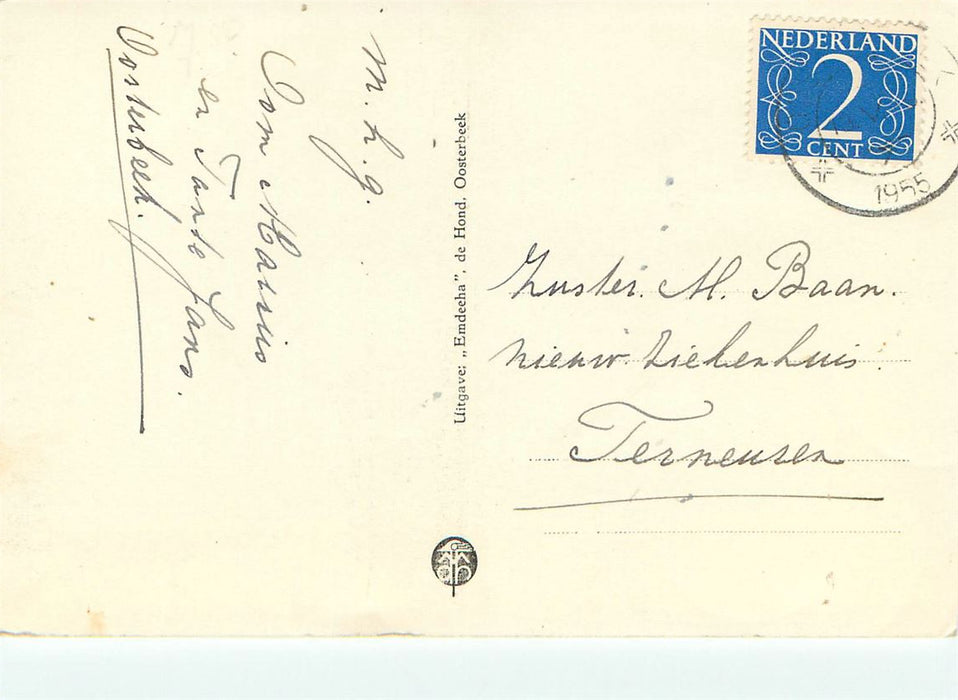 M. h. g.
Oom Marius
en Tante Jans.
Oosterbeek.
Uitgave: „Emdeeha”, de Hond, Oosterbeek
NEDERLAND
2
CENT
1955
Zuster. M. Baan.
Nieuw Ziekenhuis.
Terneuzen